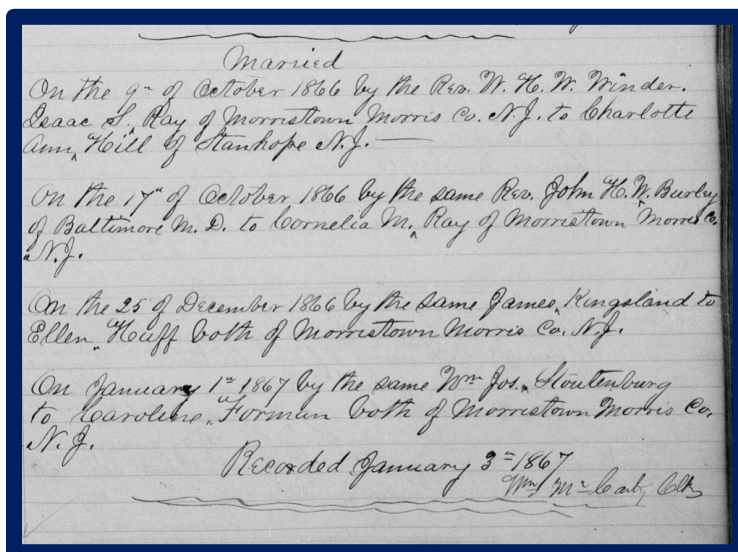 Married
On the 9th of October 1866 by the Rev. W. H. W. Winder.
Isaac S. Ray of Morristown Morris Co. N.J. to Charlotte
Ann Hill of Stanhope N.J.
On the 17th of October 1866 by the same Rev. John H. W. Burley
of Baltimore M. D. to Cornelia M. Ray of Morristown Morris Co.
N.J.
On the 25 of December 1866 by the same James Kingsland to
Ellen Huff both of Morristown Morris Co. N.J.
On January 1st 1867 by the same Wm Jos. Stoutenburg
to Caroline Forman both of Morristown Morris Co.
N. J.
Recorded January 3d 1867
Wm Mc Carty Clk